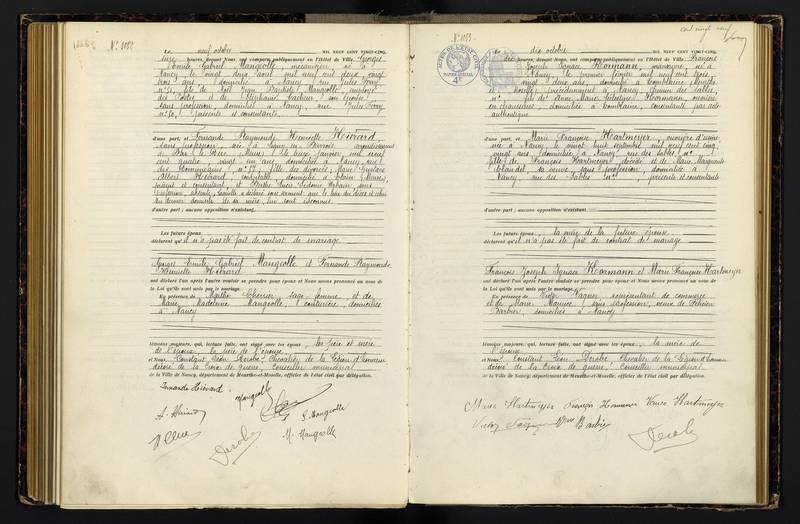 N° 1052
Le neuf octobre MIL NEUF CENT VINGT-CINQ,
heures, devant Nous ont comparu publiquement en l'Hôtel de Ville, Georges
Emile Gabriel Mangeolle, mécanicien, né à
Nancy, le vingt deux août mil neuf cent deux, vingt
trois ans, domicilié à Nancy, rue Jules Ferry,
fils de Noël Jean Baptiste Mangeolle, employé
des Postes, et de son épouse,
sans profession, domiciliés à Nancy, rue Jules Ferry
présents et consentants
d'une part, et Fernande Raymonde Henriette Hérard,
sans profession, née à Ligny en Barrois, arrondissement
de Bar le Duc (Meuse), le janvier mil neuf
cent quatre, vingt un ans, domiciliée à Nancy, rue
fille des divorcés, Marie Gustave
Albert Hérard, domicilié à Etain (Meuse),
présent et consentant, et Lucie
profession, laquelle a déclaré sous serment que le lieu du décès et celui
du dernier domicile de sa mère lui sont inconnus
d'autre part ; aucune opposition n'existant
Les futurs époux
déclarent qu'il n'a pas été fait de contrat de mariage
Georges Emile Gabriel Mangeolle et Fernande Raymonde
Henriette Hérard
ont déclaré l'un après l'autre vouloir se prendre pour époux et Nous avons prononcé au nom de
la Loi qu'ils sont unis par le mariage.
En présence de sage femme, et de
Marie Madeleine Mangeolle, couturière, domiciliées
à Nancy
témoins majeurs, qui, lecture faite, ont signé avec les époux, les père et mère
de l'époux, le père de l'épouse
et Nous, Constant Léon Derobe, Chevalier de la Légion d'honneur
décoré de la Croix de guerre, Conseiller municipal
de la Ville de Nancy, département de Meurthe-et-Moselle, officier de l'état civil par délégation.
Fernande Hérard
Mangeolle
G. Mangeolle
M. Mangeolle
Derobe
N° 1053
cent vingt neuf
Le dix octobre MIL NEUF CENT VINGT-CINQ,
dix heures, devant Nous ont comparu publiquement en l'Hôtel de Ville, François
Joseph Ignace Hormann, manœuvre, né à
Nancy, le premier février mil neuf cent trois,
vingt deux ans, domicilié à Tomblaine (Meurthe
et Moselle), précédemment à Nancy, chemin des Sables,
fils de Anne Marie Célestine Hormann, ouvrière
en chaussures, domiciliée à Tomblaine, consentante par acte
authentique
d'une part, et Marie Françoise Hartmeyer, ouvrière d'usine
née à Nancy, le vingt huit septembre mil neuf cent cinq,
vingt ans, domiciliée à Nancy, rue des Sables,
fille de François Hartmeyer, décédé et de Marie Marguerite
sa veuve, sans profession, domiciliée à
Nancy, rue des Sables présente et consentante
d'autre part ; aucune opposition n'existant
Les futurs époux, la mère de la future épouse
déclarent qu'il n'a pas été fait de contrat de mariage
François Joseph Ignace Hormann et Marie Françoise Hartmeyer
ont déclaré l'un après l'autre vouloir se prendre pour époux et Nous avons prononcé au nom de
la Loi qu'ils sont unis par le mariage.
En présence de Victor représentant de commerce
et de Marie sans profession, veuve de
Barbier, domiciliés à Nancy
témoins majeurs, qui, lecture faite, ont signé avec les époux, la mère de
l'épouse
et Nous, Constant Léon Derobe, Chevalier de la Légion d'honneur
décoré de la Croix de guerre, Conseiller municipal
de la Ville de Nancy, département de Meurthe-et-Moselle, officier de l'état civil par délégation.
Marie Hartmeyer François Hormann Veuve Hartmeyer
Victor Vve Barbier
Derobe